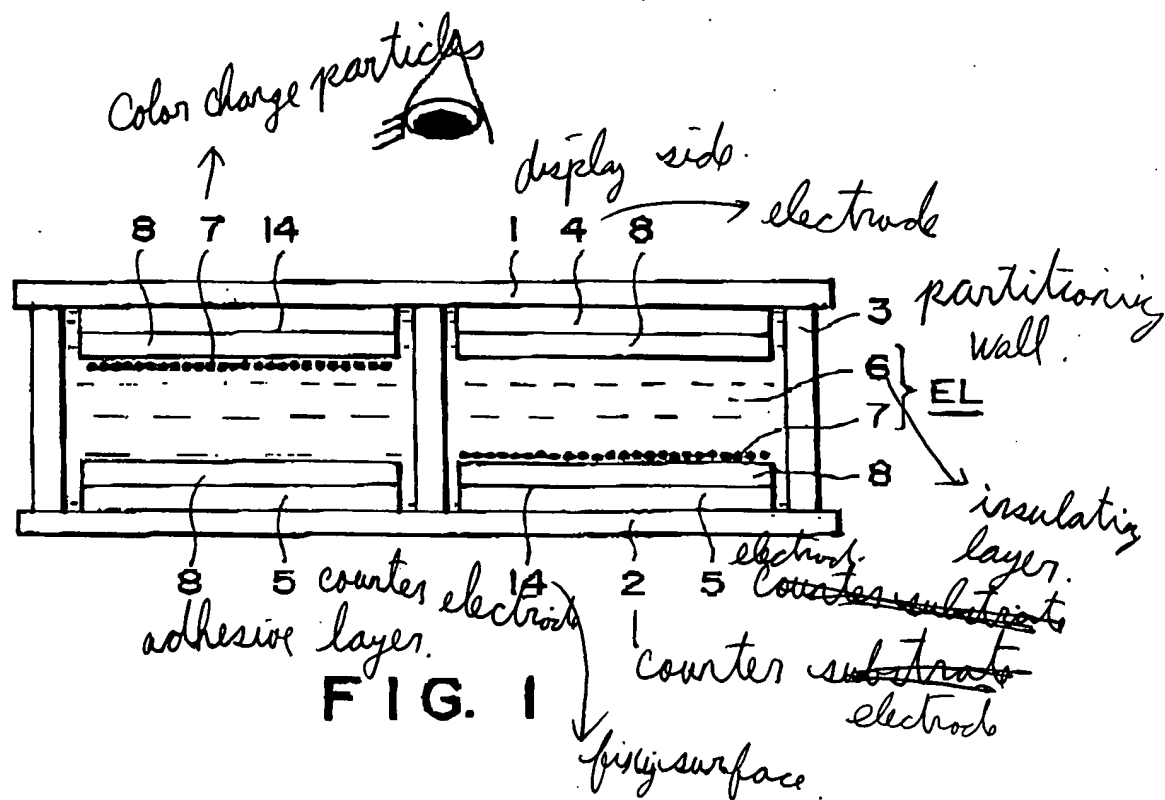 color change particles
display side.
electrode
8 7 14 1 4 8
3 partitioning
wall.
6
EL
7
8
insulating
layer.
8 5 counter electrode 14 2 5 electrode
counter substrate
adhesive layer.
counter substrate
electrode
FIG. 1
fixing surface.